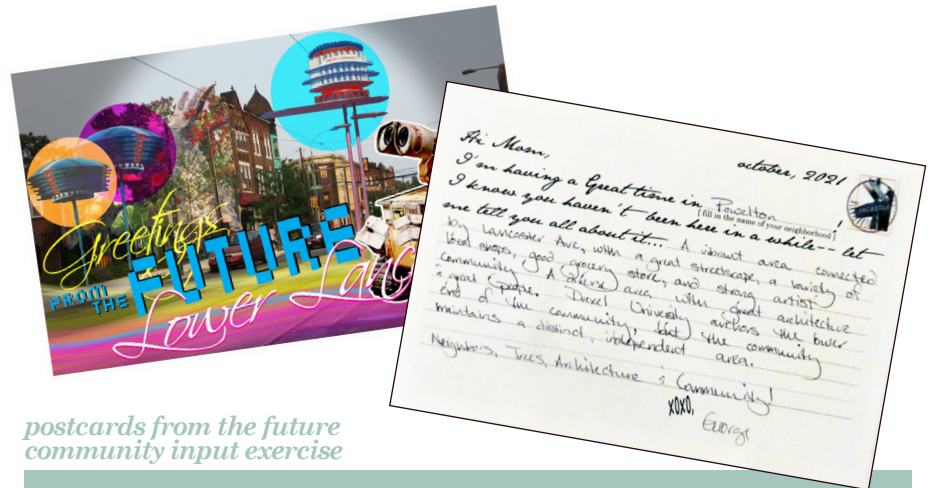 Greetings
FROM
THE
FUTURE
Lower Lanc
Hi Mom,
october, 2021
I'm having a Great time in Powelton,
[ fill in the name of your neighborhood ]
I know you haven't been here in a while-- let
me tell you all about it... A vibrant area connected
by Lancaster Ave, with a great streetscape, a variety of
local shops, good grocery store, and strong artist
community. A diverse area with great architecture
& great people. Drexel University anchors the lower
end of the community, but the community
maintains a distinct, independent area.
Neighbors, Trees, Architecture & Community!
xoxo,
George
postcards from the future
community input exercise